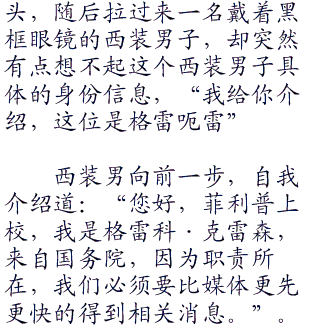 头，随后拉过来一名戴着黑
框眼镜的西装男子，却突然
有点想不起这个西装男子具
体的身份信息，“我给你介
绍，这位是格雷呃雷”
西装男向前一步，自我
介绍道：“您好，菲利普上
校，我是格雷科·克雷森，
来自国务院，因为职责所
在，我们必须要比媒体更先
更快的得到相关消息。”。